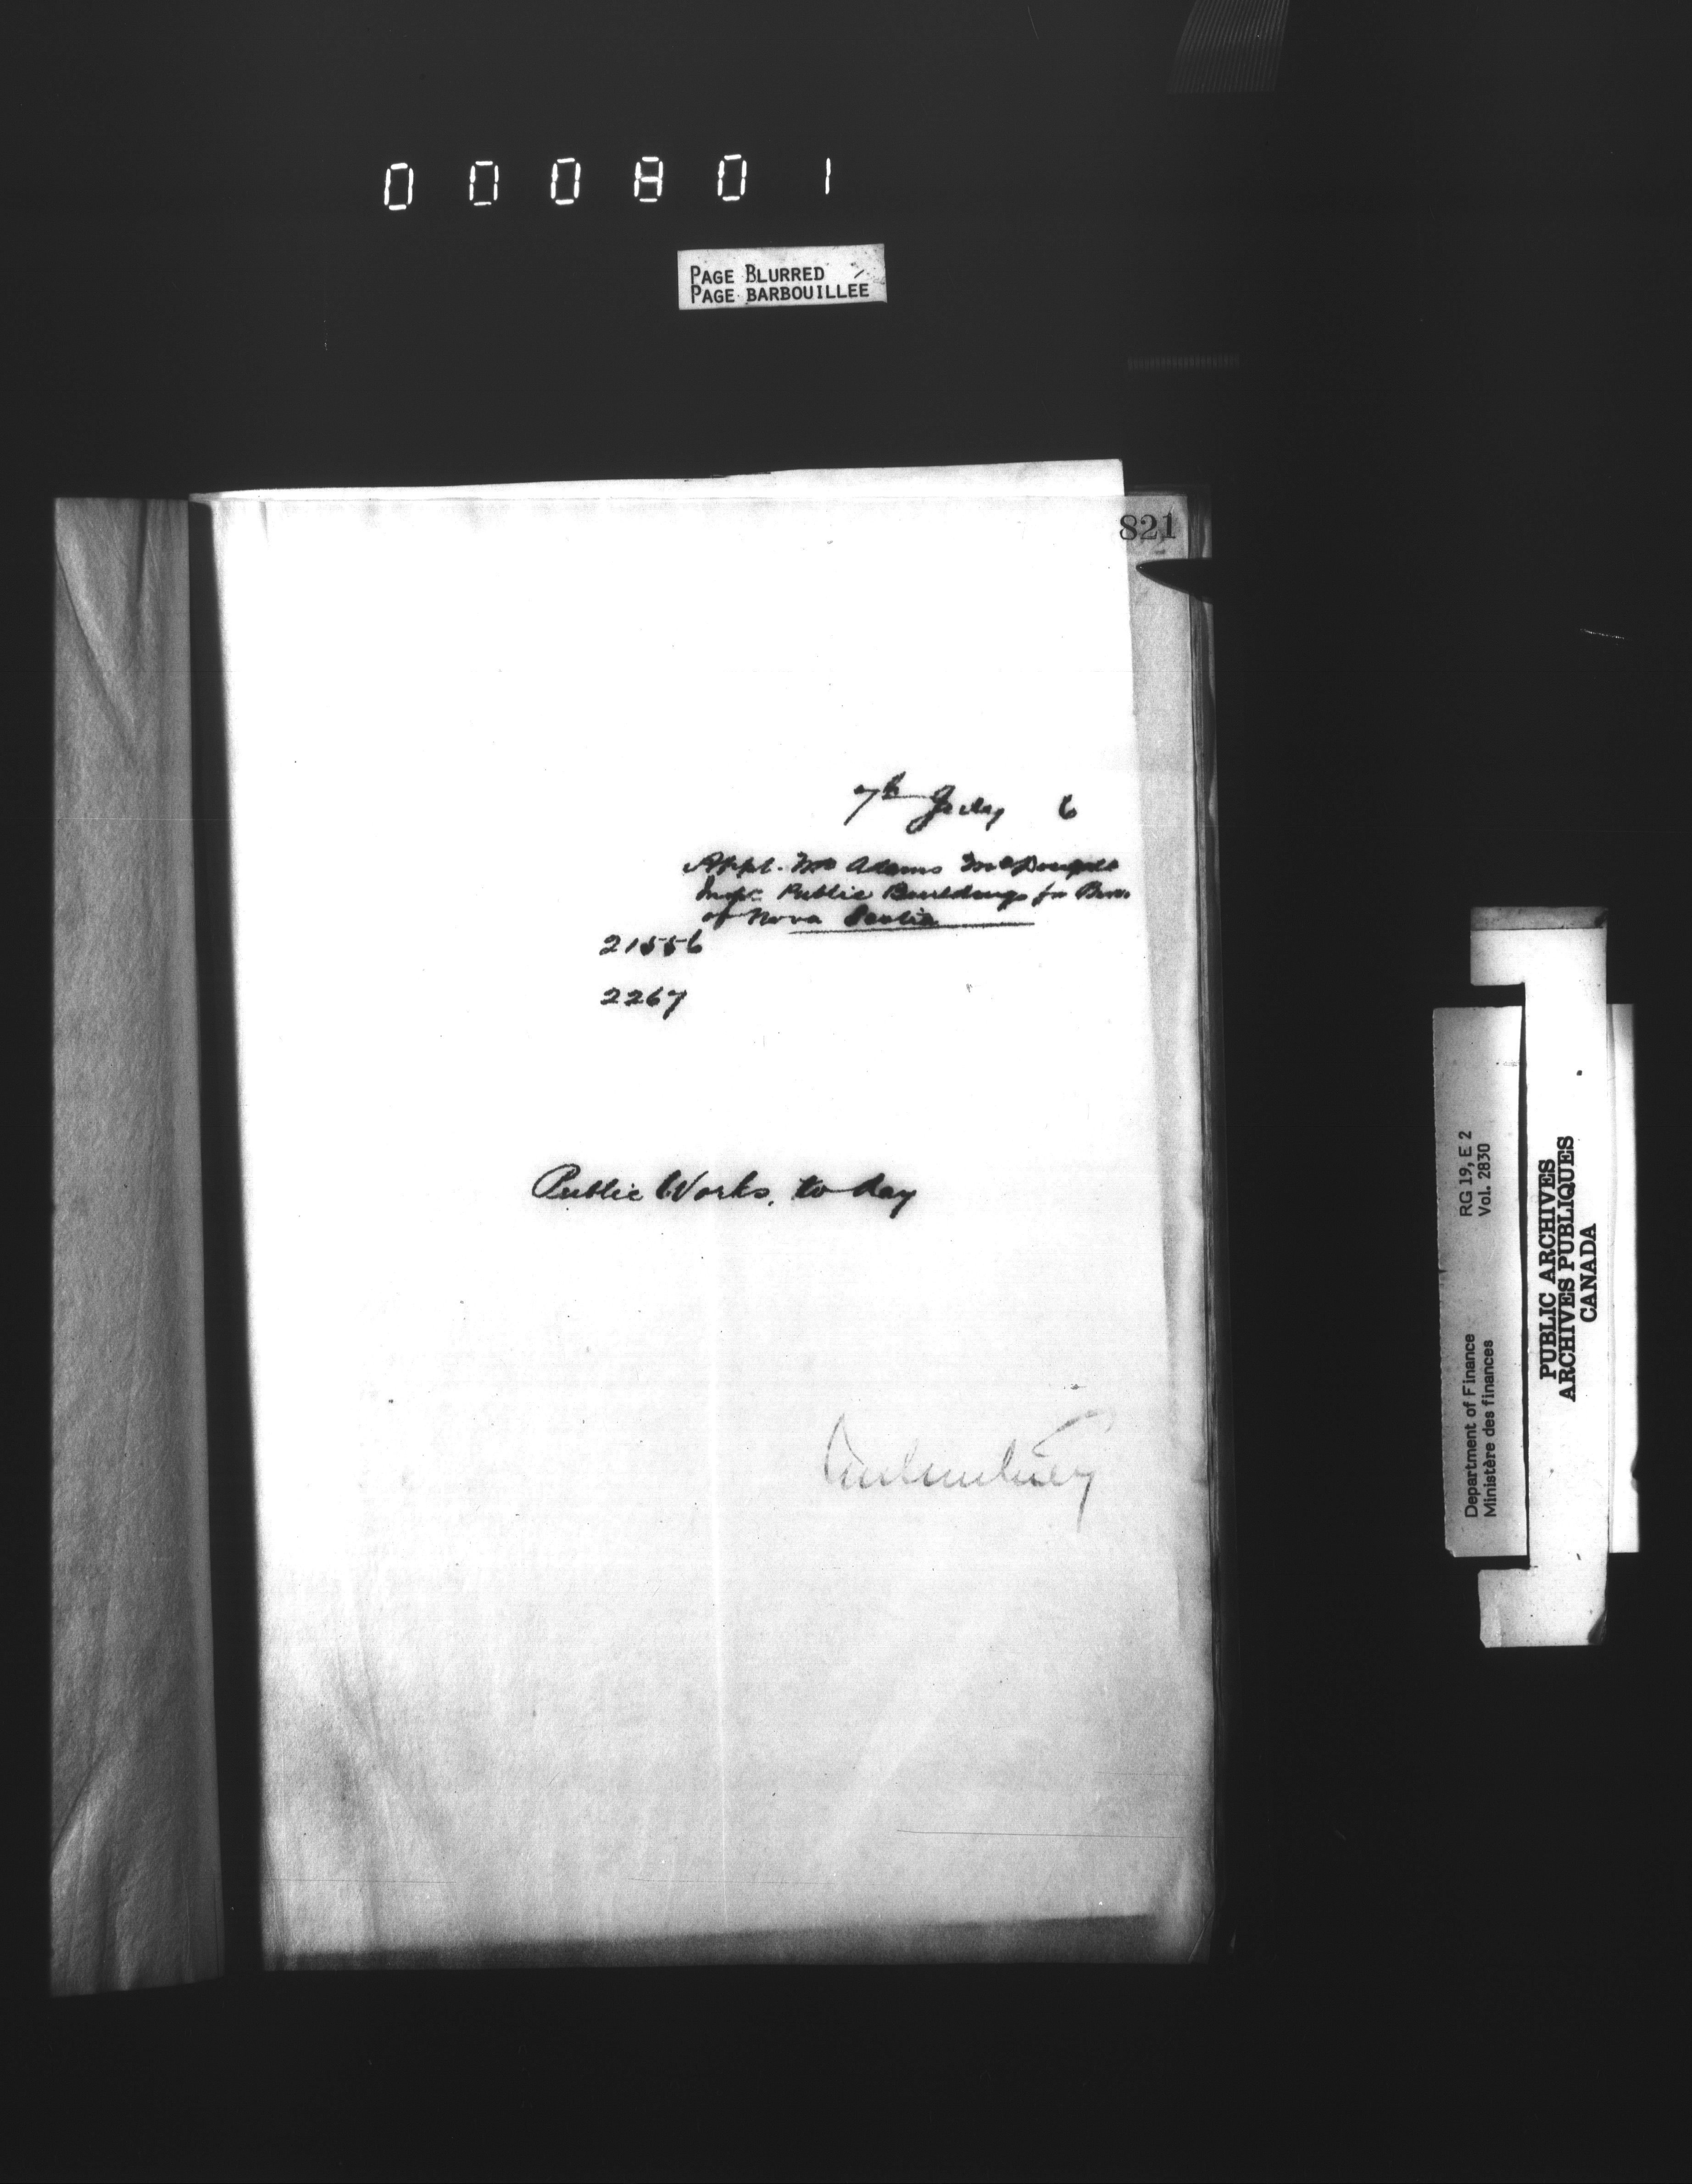 000801
PAGE BLURRED
PAGE BARBOUILLEE
821
7th July 6
Appt. Mr Adams McDougall
Insp. Public Buildings for Prov.
of Nova Scotia
21556
2267
Public Works, to day
RG 19, E 2
Vol. 2830
Department of Finance
Ministère des finances
PUBLIC ARCHIVES
ARCHIVES PUBLIQUES
CANADA